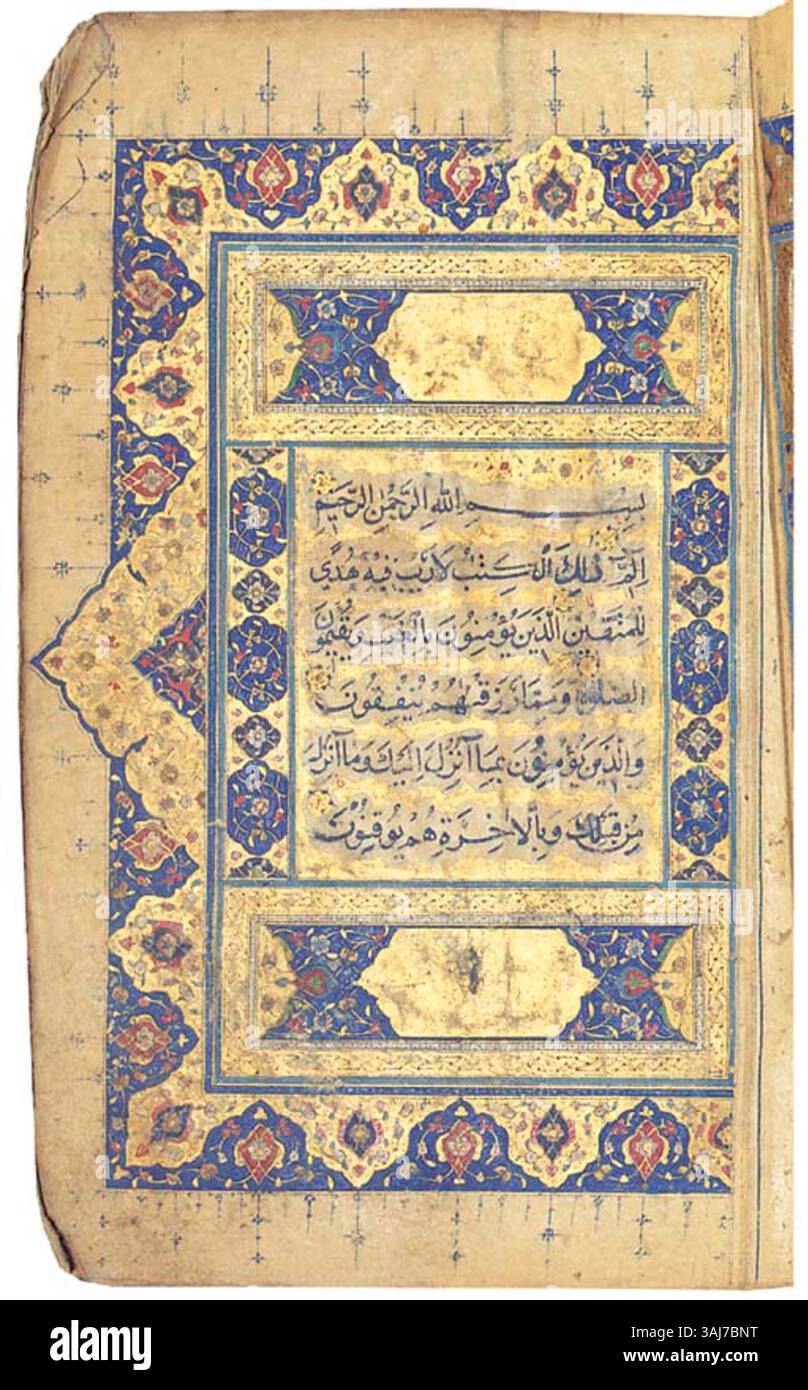 بِسْمِ اللهِ الرَّحْمٰنِ الرَّحِيْمِ
الٓمّٓ ذٰلِكَ الْكِتٰبُ لَا رَيْبَ فِيْهِ هُدًى
لِلْمُتَّقِيْنَ الَّذِيْنَ يُؤْمِنُوْنَ بِالْغَيْبِ وَيُقِيْمُوْنَ
الصَّلٰوةَ وَمِمَّا رَزَقْنٰهُمْ يُنْفِقُوْنَ
وَالَّذِيْنَ يُؤْمِنُوْنَ بِمَآ اُنْزِلَ اِلَيْكَ وَمَآ اُنْزِلَ
مِنْ قَبْلِكَ وَبِالْاٰخِرَةِ هُمْ يُوْقِنُوْنَ
alamy
alamy
alamy
a
a
a
a
alamy
Image ID: 3AJ7BNT
www.alamy.com